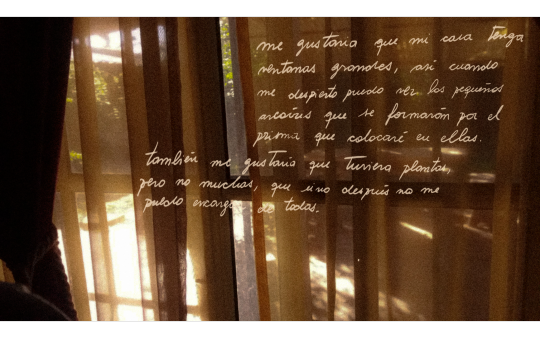 me gustaría que mi casa tenga
ventanas grandes, así cuando
me despierto puedo ver los pequeños
arcoíris que se formarán por el
prisma que colocaré en ellas.
también me gustaría que tuviera plantas,
pero no muchas, que sino después no me
puedo encargar de todas.